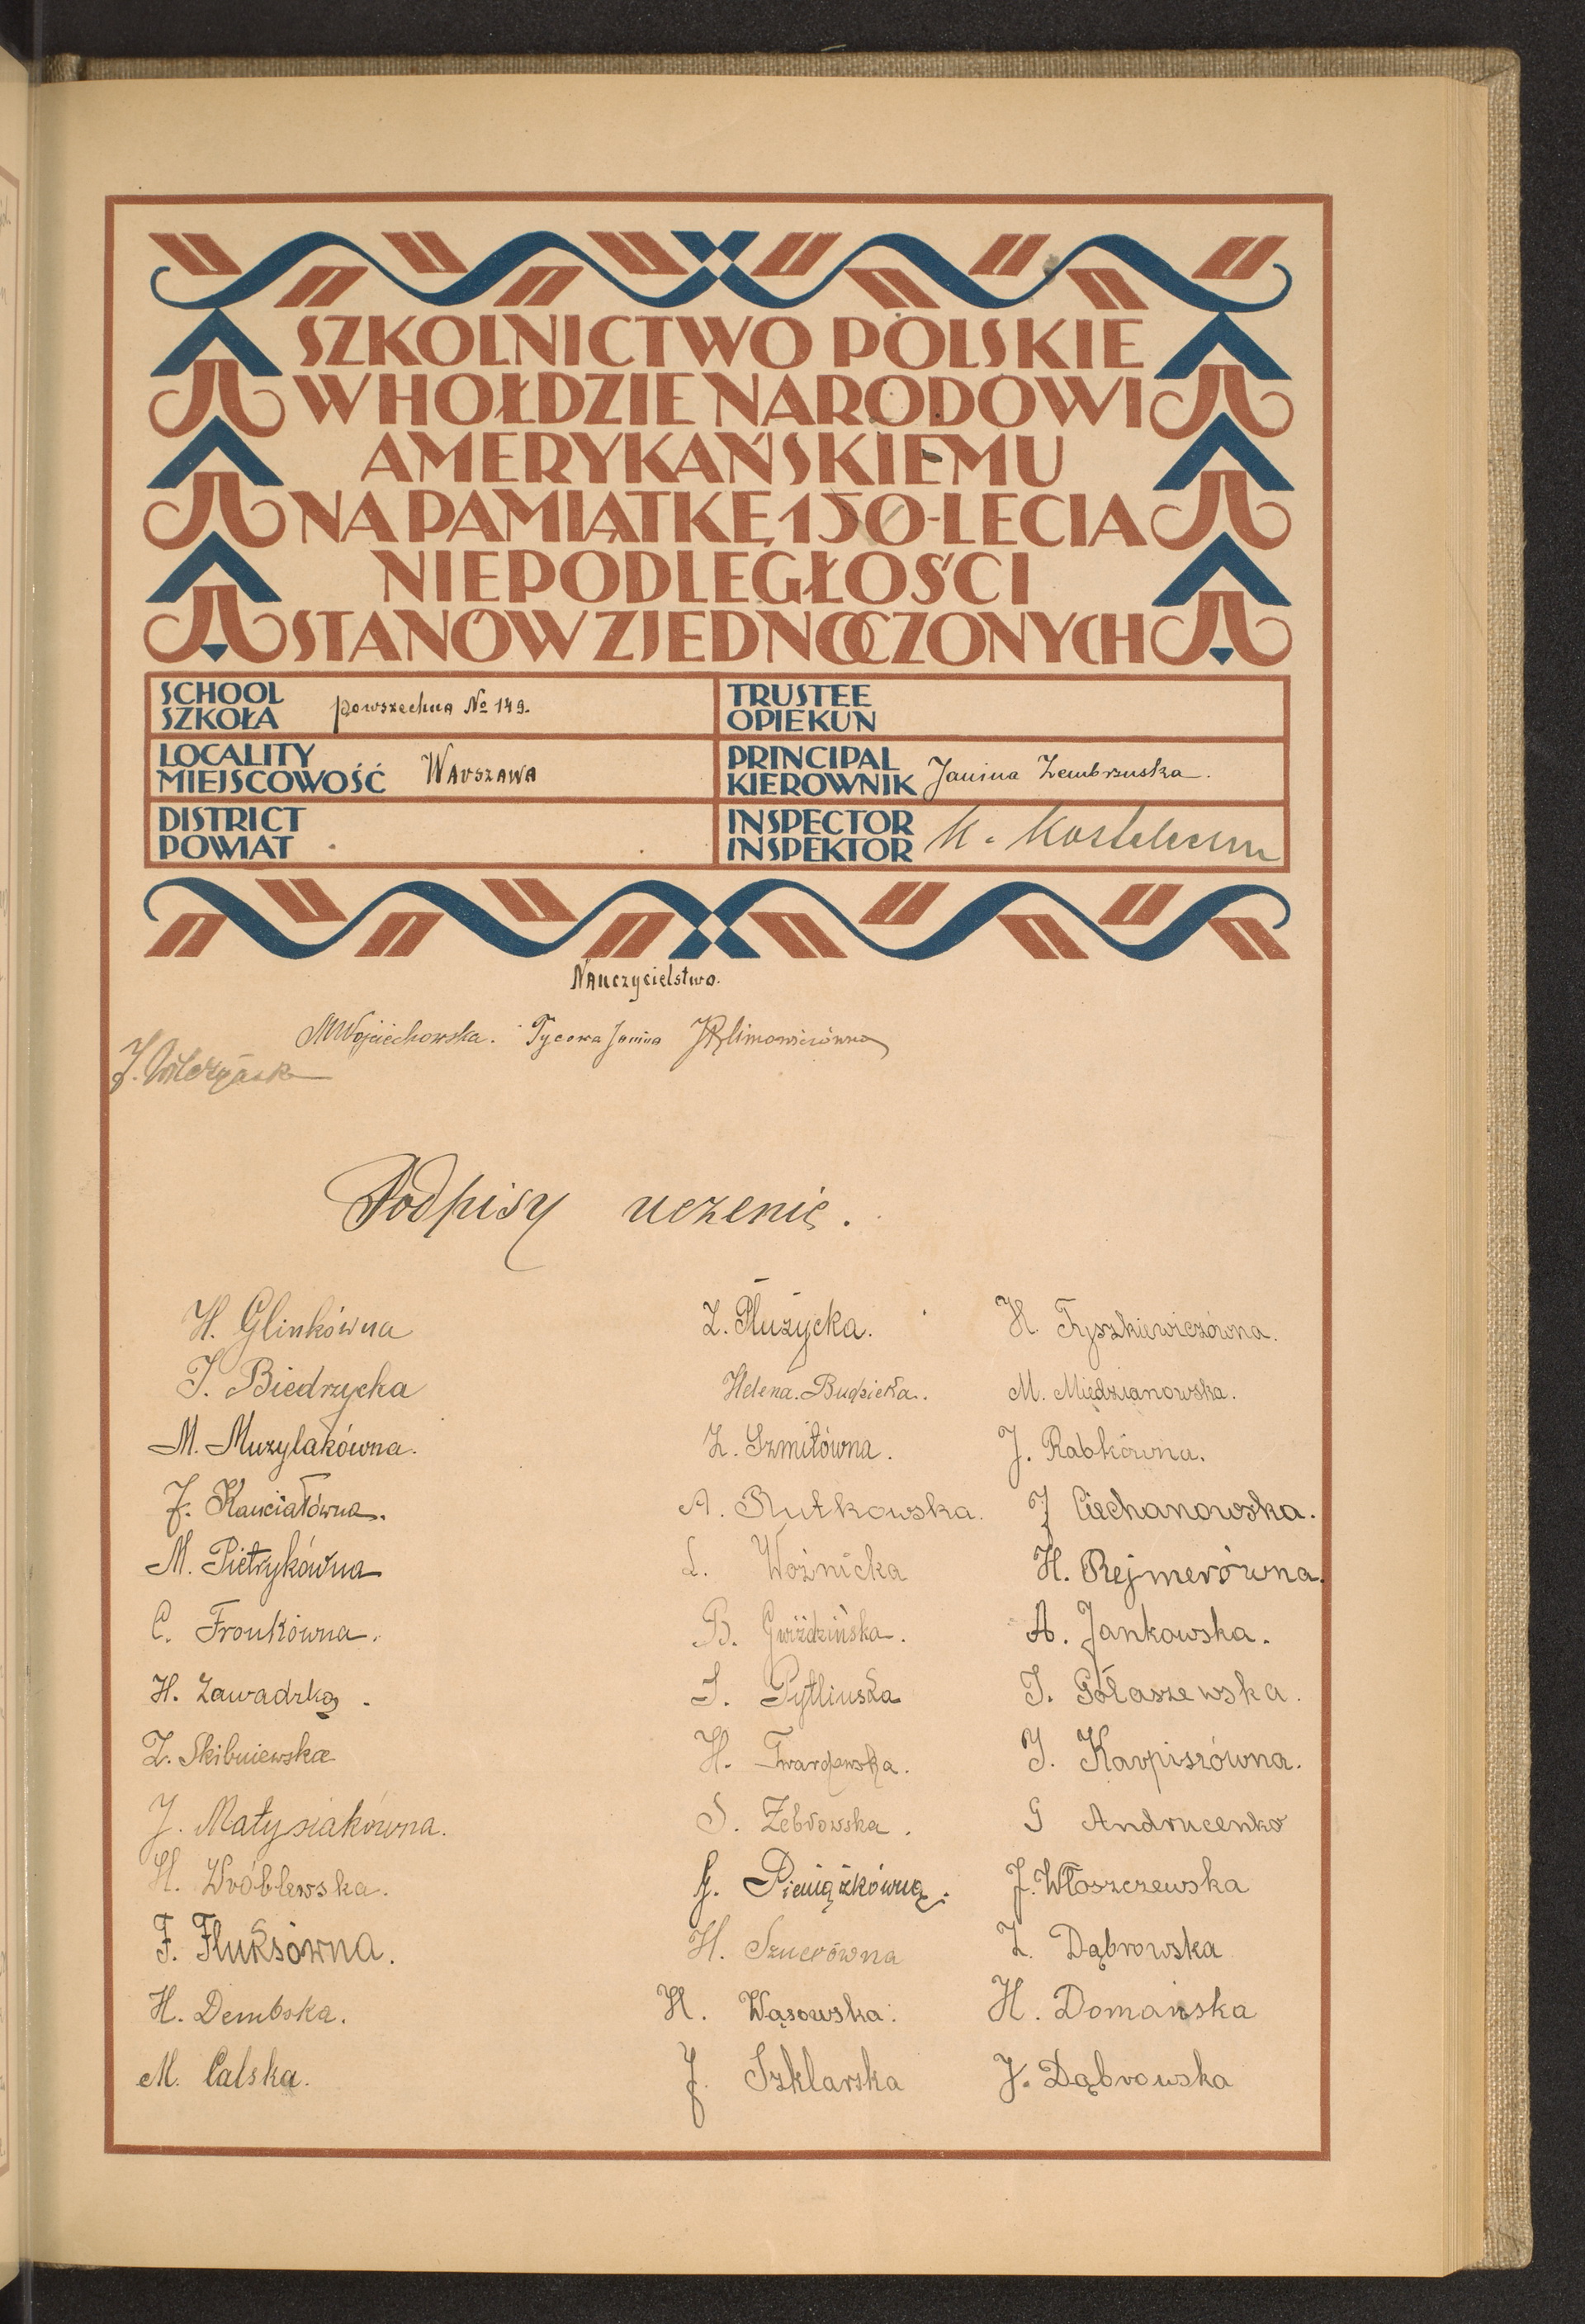 SZKOLNICTWO POLSKIE
W HOŁDZIE NARODOWI
AMERYKAŃSKIEMU
NA PAMIĄTKĘ 150-LECIA
NIEPODLEGŁOŚCI
STANÓW ZJEDNOCZONYCH
SCHOOL
SZKOŁA powszechna № 149.
TRUSTEE
OPIEKUN
LOCALITY
MIEJSCOWOŚĆ Warszawa
PRINCIPAL
KIEROWNIK Janina Zembrzuska.
DISTRICT
POWIAT
INSPECTOR
INSPEKTOR K.
Nauczycielstwo.
M Wojciechowska. Tycowa Janina J Klimowiczówna
J.
Podpisy uczenic.
H. Glinkówna
Z. Płużycka.
H Tyszkiewiczówna.
J. Biedrzycka
Helena. Budziełła.
M. Miedzianowska.
M. Muzylakówna.
Z. Szmitówna.
J. Rabkówna.
J. Kanciałówna.
A. Rutkowska.
J Ciechanowska.
M. Pietrykówna
L. Woźnicka
H. Rejmerówna.
C. Fronkówna.
B. Gwiździńska.
A. Jankowska.
H. Zawadzka.
S. Pytlińska
J. Gołaszewska.
Z. Skibniewska
H. Twardowska.
J. Karpiszówna.
J. Małysiakówna.
S. Żebrowska.
G Andrucenko
H. Wróblewska.
G. Pieniążkówna.
J. Włoszczewska
F. Fluksówna.
H. Szucrówna
Z. Dąbrowska
H. Dembska.
H. Wąsowska.
H. Domańska
M. Calska.
J. Szklarska
J. Dąbrowska